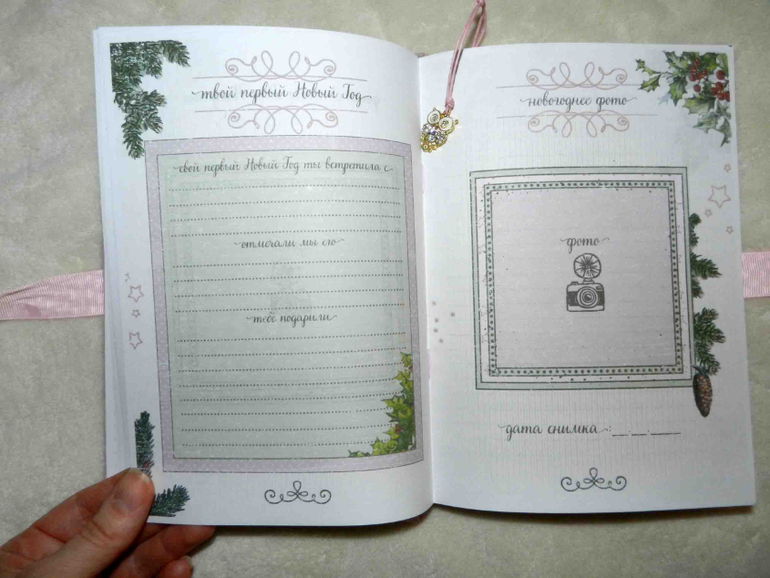 твой первый Новый Год
свой первый Новый Год ты встретила с
отмечали мы его
тебе подарили
новогоднее фото
фото
дата снимка : __.__.____